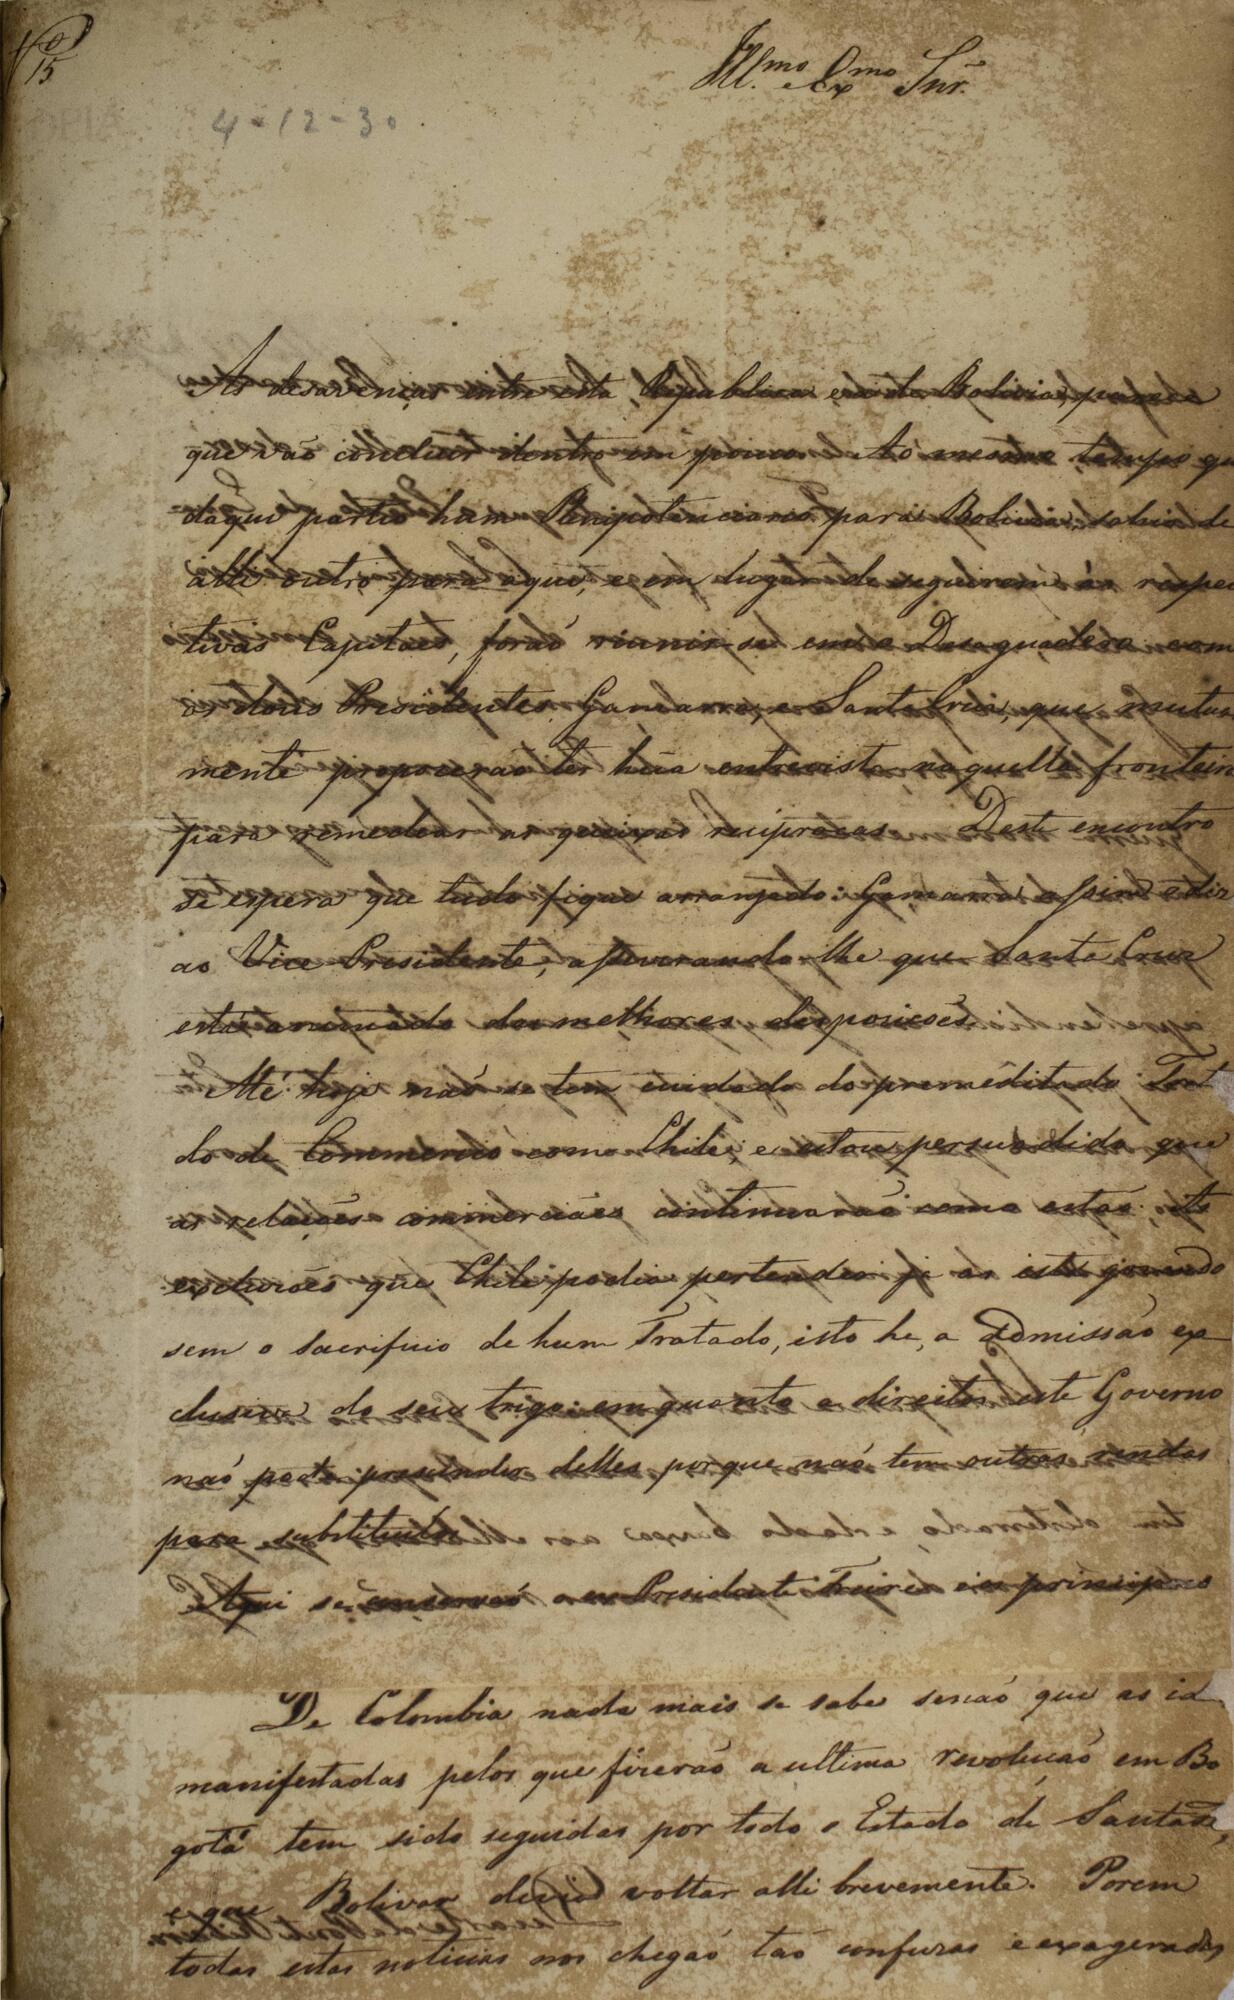 Nº 15
Ill.mo e Ex.mo Snr.
4-12-30
As desavenças entre esta Republica e a de Bolivia, parece
que vaõ concluir dentro em pouco. Ao mesmo tempo qu
daqui partio hum Plenipotenciario para Bolivia, sahio de
alli outro para aqui, e em lugar de seguirem ás respec
tivas Capitaes, foraõ reunir-se em o Desaguadero com
os dous Presidentes, Gamarra, e Santa Cruz, que mutua
mente propozeraõ ter hũa entrevista naquella fronteir
para remediar as queixas reciprocas. Deste encontro
se espera que tudo fique arranjado: Gamarra assim o diz
ao Vice Presidente, asseverando-lhe que Santa Cruz
está animado das melhores disposicoẽs.
Até hoje naõ se tem cuidado do premeditado Trat
do de Commercio como Chile; e estou persuadido que
as relaçoẽs commerciaes continuaraõ como estaõ; as
exclusoẽs que Chile podia pertender já as está gozando
sem o sacrificio de hum Tratado, isto he, a admissaõ ex
clusiva do seu trigo: emquanto a direitos este Governo
naõ pode prescindir delles, porque naõ tem outras rendas
para substituilos
Aqui se conservaõ o ex Presidente Freire e os principaes
De Colombia nada mais se sabe senaõ que as id
manifestadas pelos que fizeraõ a ultima revoluçaõ em Bo
gotá tem sido seguidas por todo o Estado de Santafe,
e que Bolivar devia voltar alli brevemente. Porem
todas estas noticias nos chegaõ taõ confuzas e exageradas